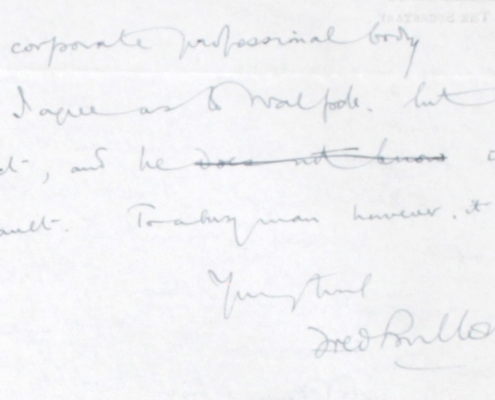 corporate professional body
I agree as to Walpole. but
, and he does not know
To a busy man however, it
Yours truly
Fred